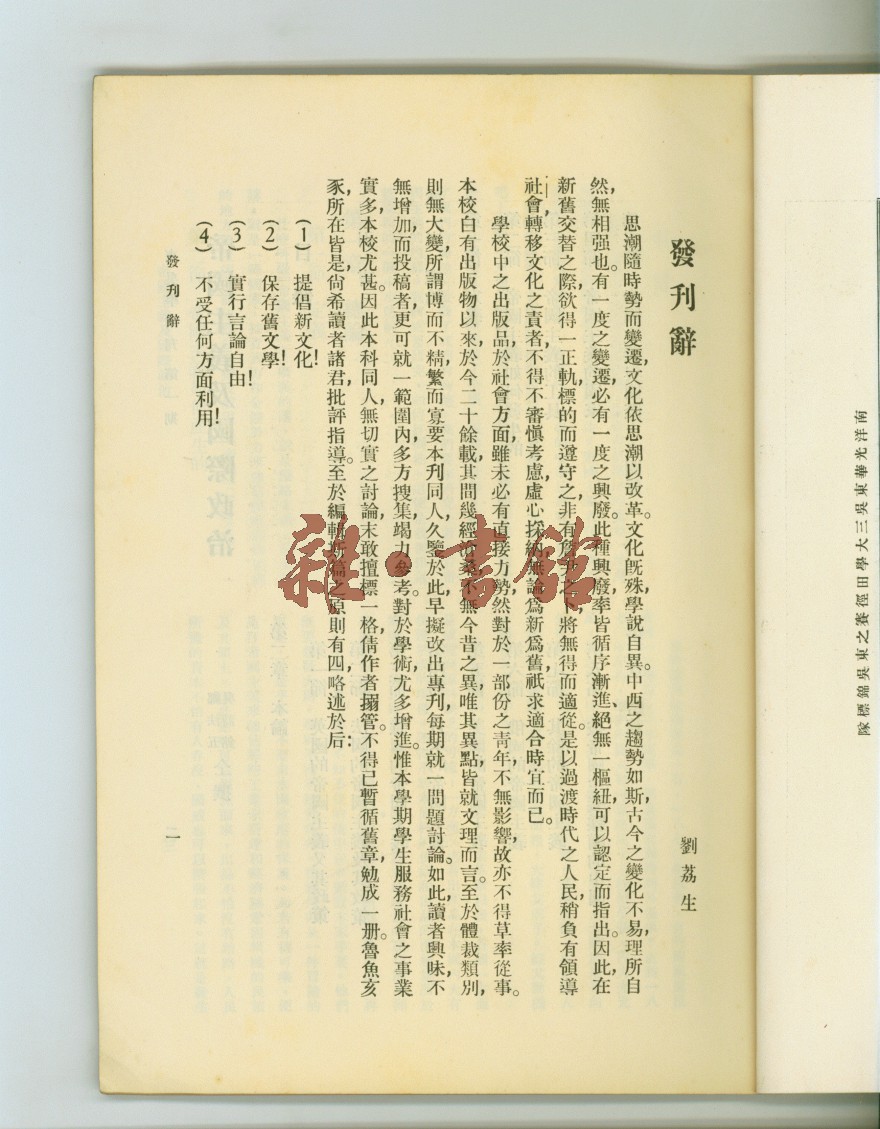 南洋光華東吳三大學田徑賽之東吳錦標隊
發刊辭
劉荔生
思潮隨時勢而變遷，文化依思潮以改革。文化旣殊，學說自異。中西之趨勢如斯，古今之變化不易，理所自
然，無相强也。有一度之變遷，必有一度之興廢。此種興廢，率皆循序漸進，絕無一樞紐，可以認定而指出。因此，在
新舊交替之際，欲得一正軌標的而遵守之，非有 之下，將無得而適從。是以過渡時代之人民，稍負有領導
社會，轉移文化之責者，不得不審愼考慮，虛心採納，無論爲新爲舊，祇求適合時宜而已。
學校中之出版品，於社會方面，雖未必有直接力勢，然對於一部份之靑年，不無影響，故亦不得草率從事。
本校白有出版物以來，於今二十餘載，其間幾經滄桑，不無今昔之異，唯其異點，皆就文理而言。至於體裁類別，
則無大變，所謂博而不精，繁而寡要本刊同人，久鑒於此，早擬改出專刊，每期就一問題討論、如此，讀者興味，不
無增加，而投稿者，更可就一範圍內，多方搜集，竭力參考。對於學術，尤多增進。惟本學期學生服務社會之事業
實多，本校尤甚。因此本科同人，無切實之討論，末敢擅標一格，倩作者搦管。不得已暫循舊章，勉成一册。魯魚亥
豕，所在皆是，尙希讀者諸君，批評指導。至於編輯斯篇之原則有四，略述於后：
（1） 提倡新文化！
（2） 保存舊文學！
（3） 實行言論自由！
（4） 不受任何方面利用！
發刊辭
一
雜·書館